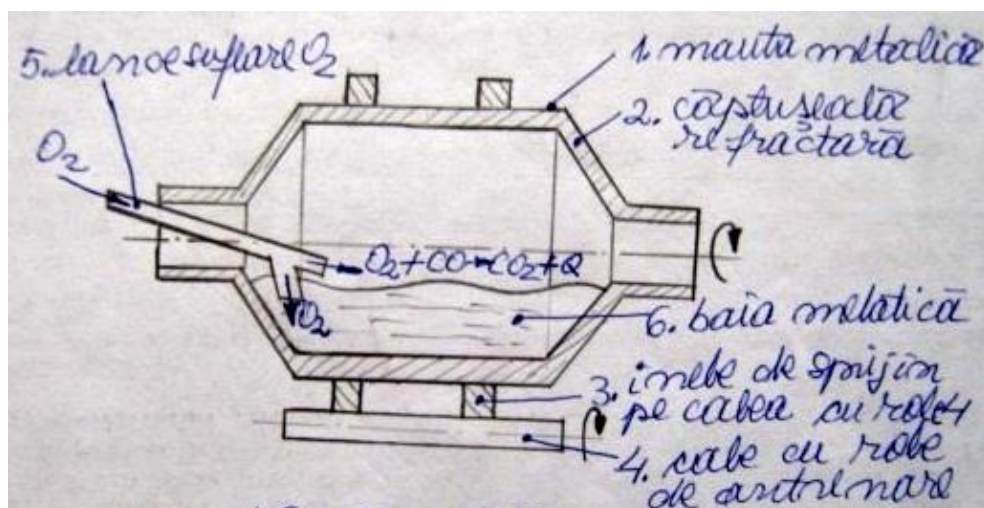 5. lance suflare O2
O2
1. manta metalică
2. căptușeală
refractară
O2+CO→CO2+Q
O2
6. baia metalică
3. inele de sprijin
pe calea cu role 4
4. cale cu role
de antrenare